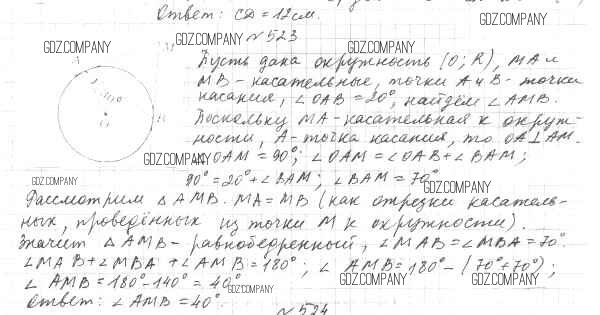 Ответ: CD = 12см.
GDZ.COMPANY
№ 523
GDZ.COMPANY
GDZ.COMPANY
M
A
B
O
Пусть дана окружность (O; R), MA и
MB - касательные, точки A и B - точки
касания, ∠OAB = 20°, найдём ∠AMB.
GDZ.COMPANY
Поскольку MA - касательная к окруж-
ности, A - точка касания, то OA⊥AM.
GDZ.COMPANY
∠OAM = 90°; ∠OAM = ∠OAB + ∠BAM;
GDZ.COMPANY
90° = 20° + ∠BAM; ∠BAM = 70°
GDZ.COMPANY
Рассмотрим △AMB. MA = MB (как отрезки касатель-
ных, проведённых из точки M к окружности).
Значит △AMB - равнобедренный, ∠MAB = ∠MBA = 70°.
∠MAB + ∠MBA + ∠AMB = 180°; ∠AMB = 180° - (70° + 70°);
∠AMB = 180° - 140° = 40°
GDZ.COMPANY
GDZ.COMPANY
GDZ.COMPANY
Ответ: ∠AMB = 40°.
№ 524